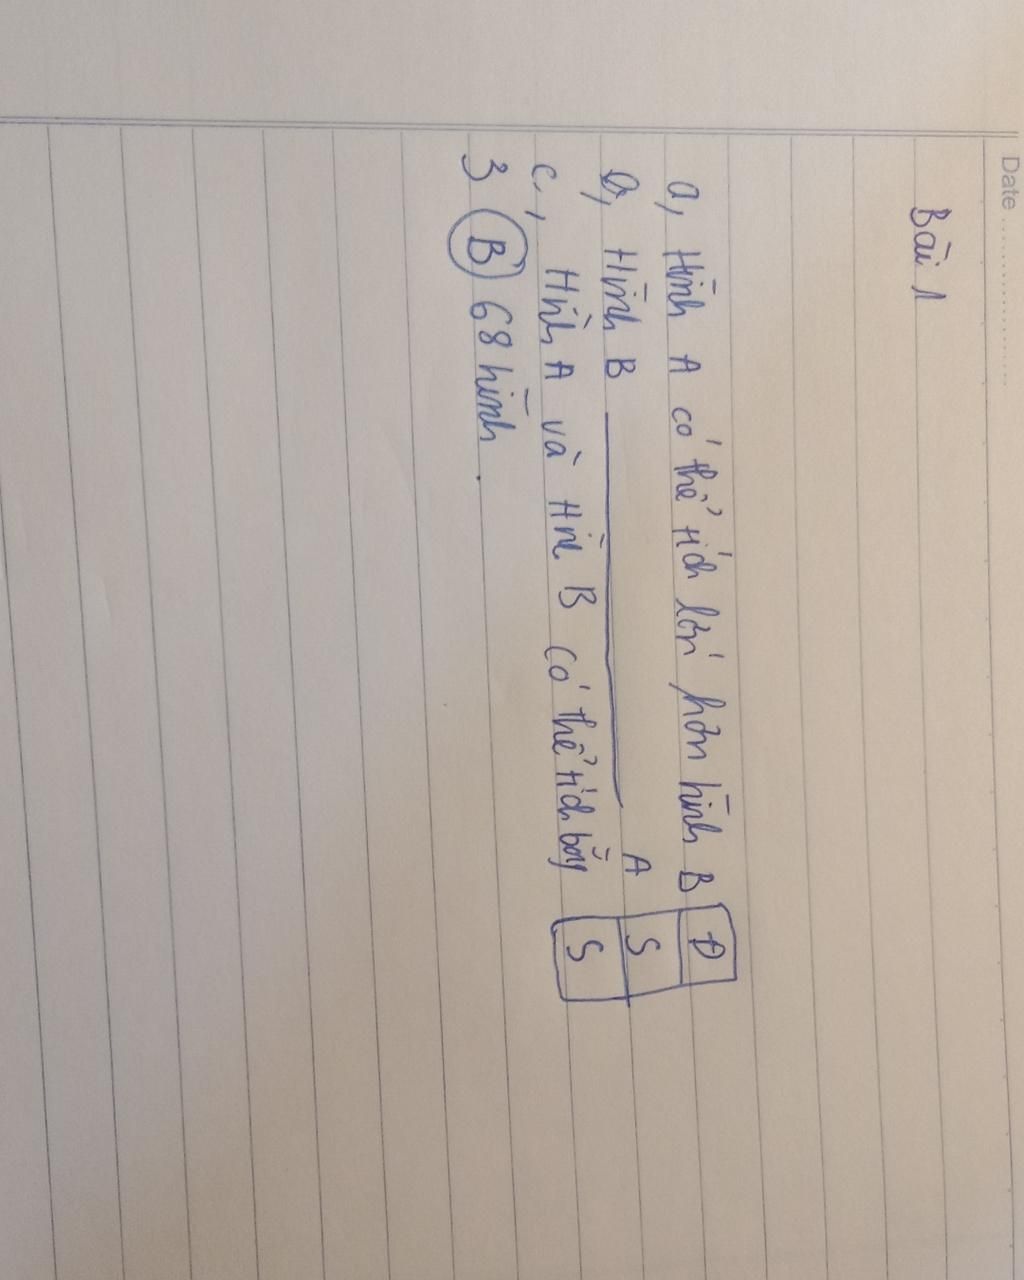 Date ..................
Bài 1
a, Hình A có thể tích lớn hơn hình B Đ
b, Hình B ——— A S
c, Hình A và Hình B có thể tích bằng S
3 B 68 hình.